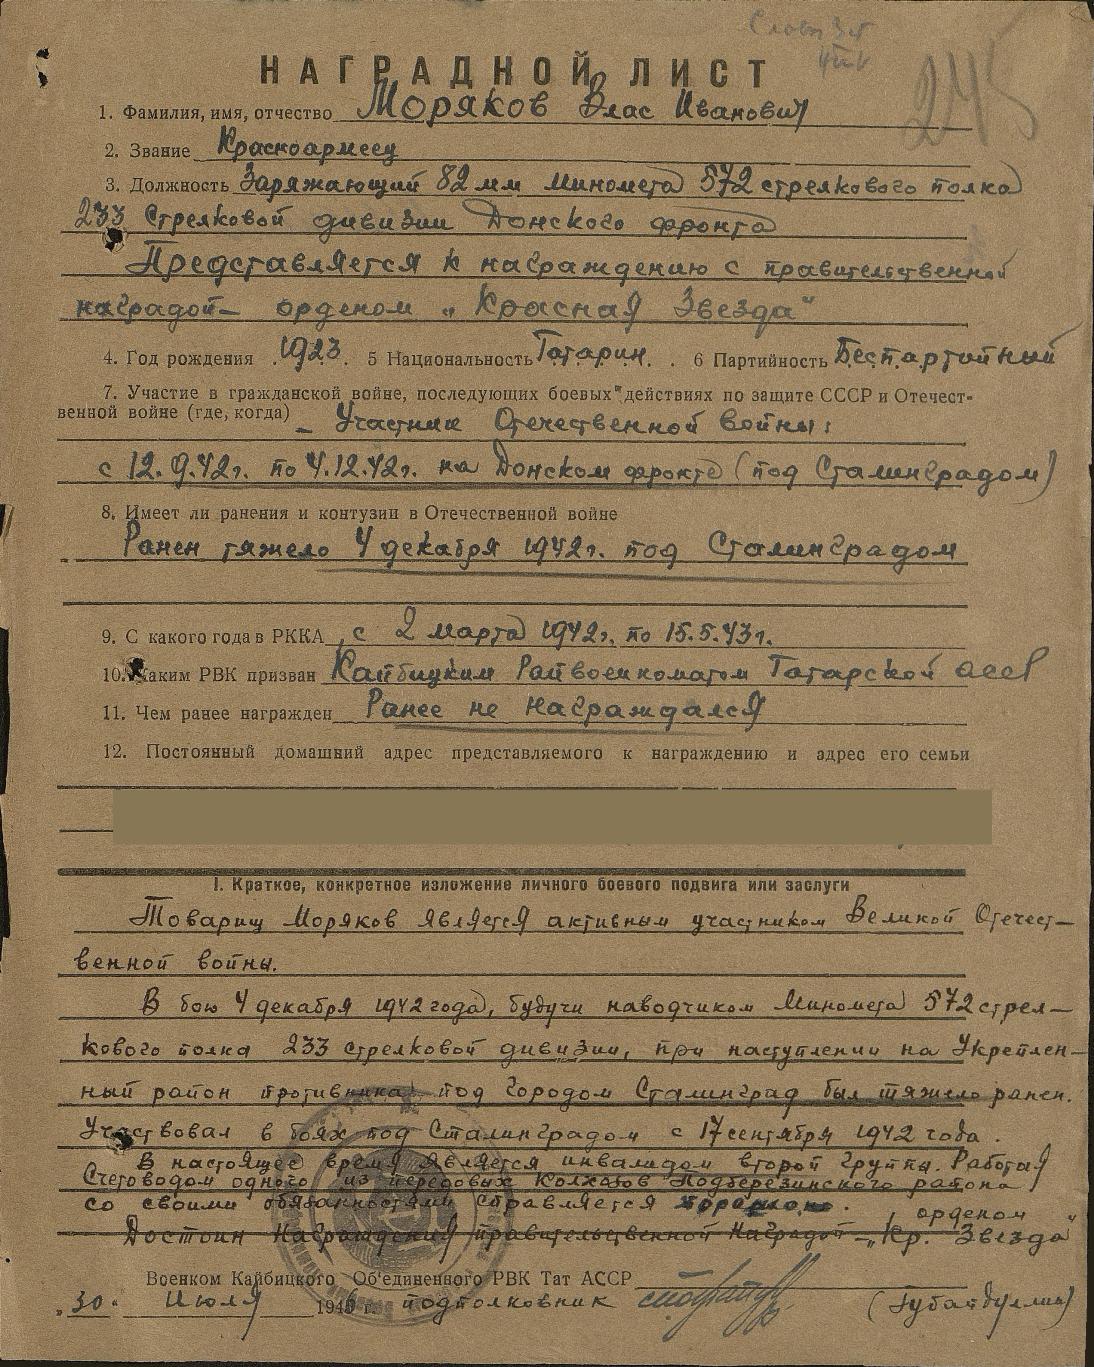 245
НАГРАДНОЙ ЛИСТ
1. Фамилия, имя, отчество Моряков Влас Иванович
2. Звание Красноармеец
3. Должность Заряжающий 82 мм миномета 572 стрелкового полка
233 Стрелковой дивизии Донского фронта
Представляется к награждению с правительственной
наградой – орденом „Красная Звезда"
4. Год рождения 1923. 5 Национальность Татарин. 6 Партийность Беспартийный
7. Участие в гражданской войне, последующих боевых действиях по защите СССР и Отечест-
венной войне (где, когда) – Участник Отечественной войны:
с 12.9.42г. по 4.12.42г. на Донском фронте (под Сталинградом)
8. Имеет ли ранения и контузии в Отечественной войне
Ранен тяжело 4 декабря 1942г. под Сталинградом
9. С какого года в РККА с 2 марта 1942г. по 15.5.43г.
10. Каким РВК призван Кайбицким Райвоенкоматом Татарской АССР
11. Чем ранее награжден Ранее не награждался
12. Постоянный домашний адрес представляемого к награждению и адрес его семьи
I. Краткое, конкретное изложение личного боевого подвига или заслуги
Товарищ Моряков является активным участником Великой Отечест-
венной войны.
В бою 4 декабря 1942 года, будучи наводчиком миномета 572 стрел-
кового полка 233 стрелковой дивизии, при наступлении на Укреплен-
ный район противника под городом Сталинград был тяжело ранен.
Участвовал в боях под Сталинградом с 17 сентября 1942 года.
В настоящее время является инвалидом второй группы. Работая
Счетоводом одного из передовых Колхозов Подберезинского района
со своими обязанностями справляется хорошо.
Достоин Награждения правительственной Наградой – орденом „Кр. Звезда"
Военком Кайбицкого Об'единенного РВК Тат АССР
„30" Июля 1946 г. подполковник (Губайдуллин)